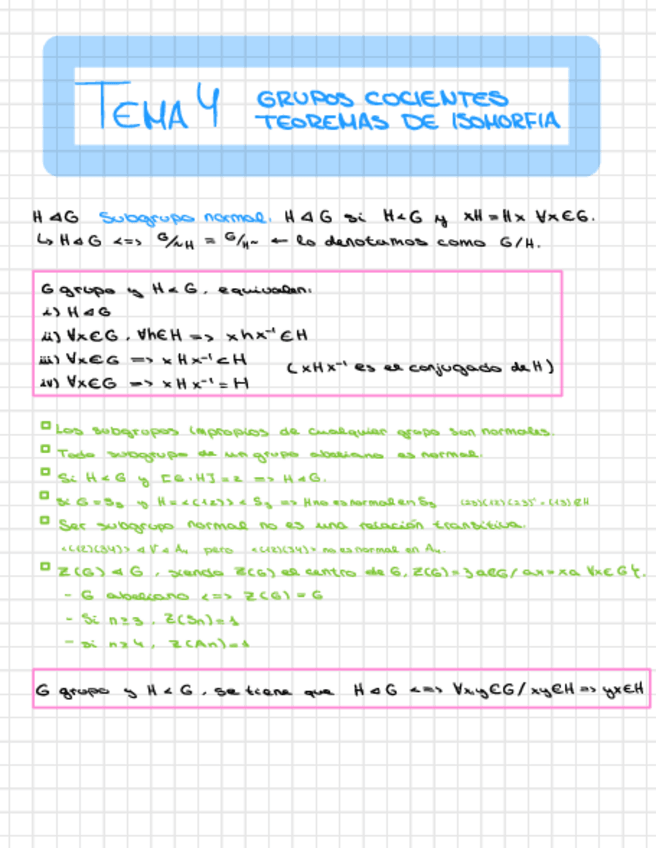 TEMA 4 GRUPOS COCIENTES
TEOREMAS DE ISOMORFIA
H ⊲ G Subgrupo normal. H ⊲ G si H < G y xH = Hx ∀x∈G.
↳ H ⊲ G <=> G/~H = G/H~ ← lo denotamos como G/H.
G grupo y H < G, equivalen:
i) H ⊲ G
ii) ∀x∈G, ∀h∈H => xhx⁻¹∈H
iii) ∀x∈G => xHx⁻¹⊂H
(xHx⁻¹ es el conjugado de H)
iv) ∀x∈G => xHx⁻¹=H
Los subgrupos impropios de cualquier grupo son normales.
Todo subgrupo de un grupo abeliano es normal.
Si H < G y [G:H]=2 => H ⊲ G.
Si G=S₃ y H=<(12)> < S₃ => H no es normal en S₃ (23)(12)(23)⁻¹=(13)∉H
Ser subgrupo normal no es una relación transitiva.
<(12)(34)> ⊲ V ⊲ A₄ pero <(12)(34)> no es normal en A₄.
Z(G) ⊲ G, siendo Z(G) el centro de G, Z(G)={a∈G/ax=xa ∀x∈G}.
- G abeliano <=> Z(G)=G
- Si n≥3, Z(Sn)=1
- Si n≥4, Z(An)=1
G grupo y H < G, se tiene que H ⊲ G <=> ∀x,y∈G/xy∈H => yx∈H